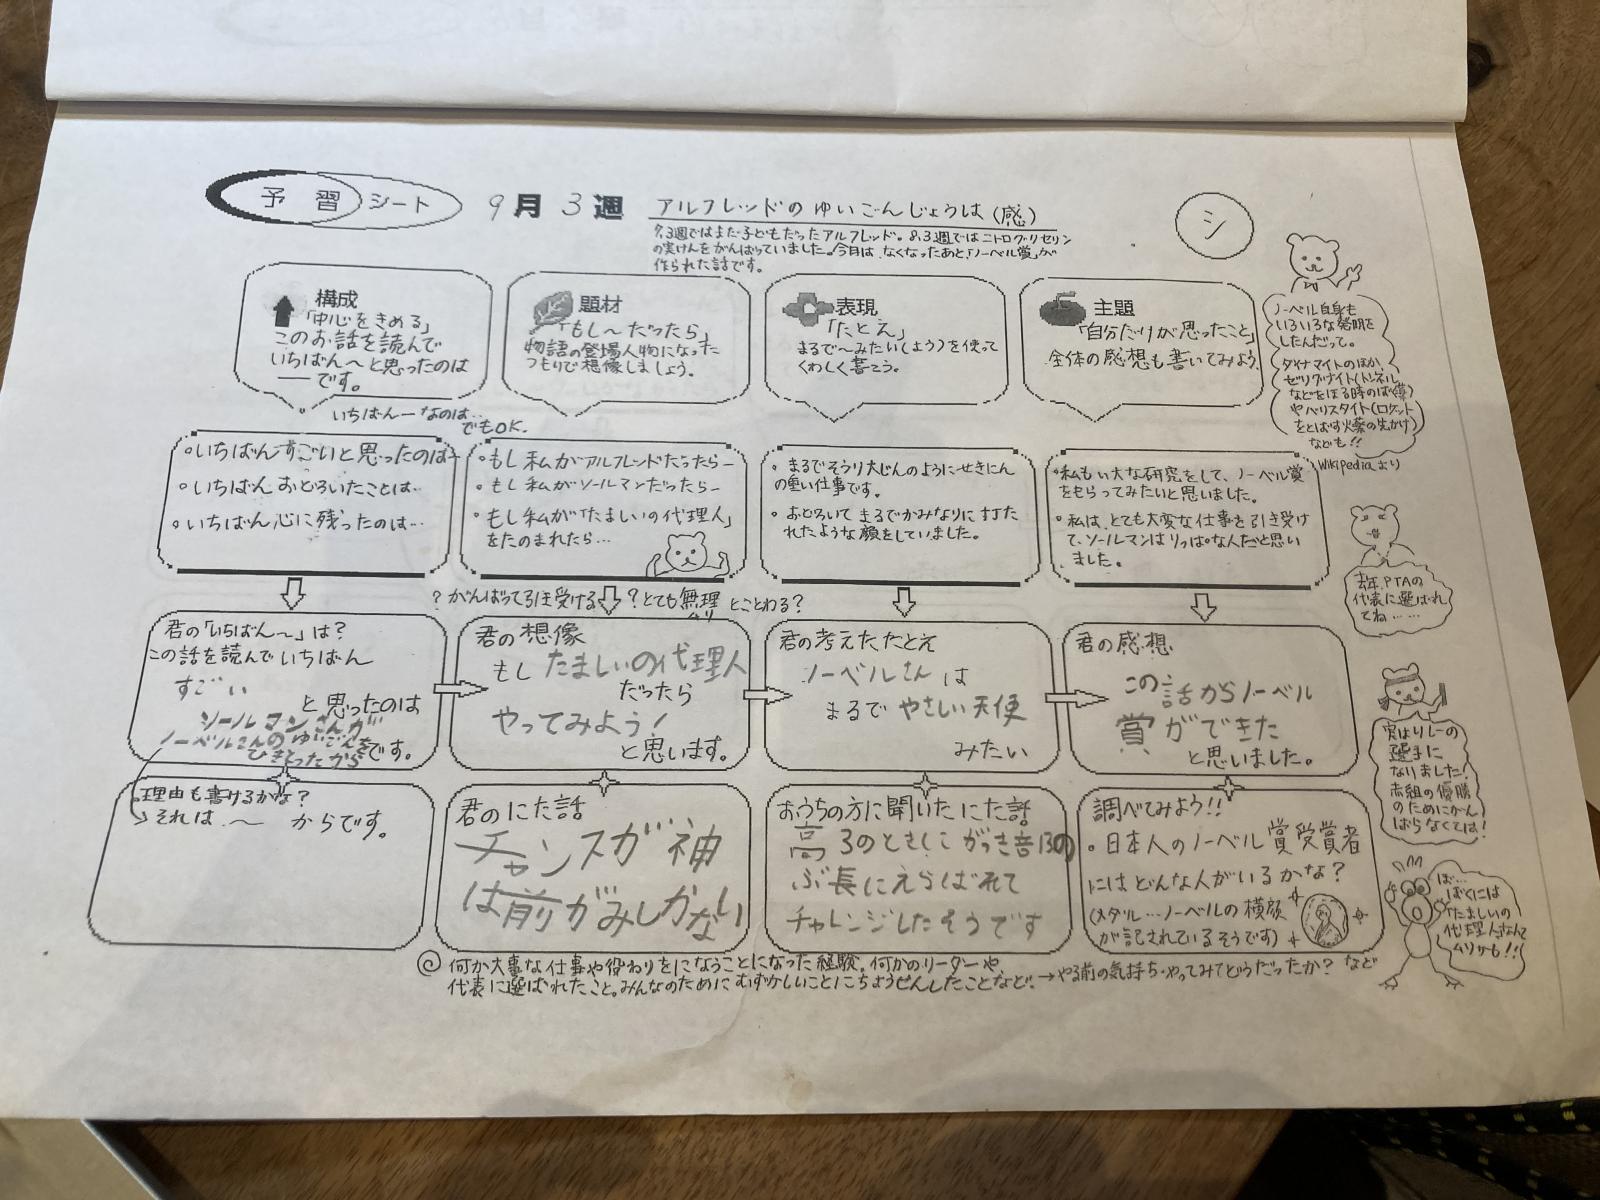 予習シート
9月3週
アルフレッドのゆいごんじょうは(感)
シ
7.3週ではまだ子どもだったアルフレッド。8.3週ではニトログリセリン
の実けんをがんばっていました。今月は、なくなったあと「ノーベル賞」が
作られた話です。
構成
「中心をきめる」
このお話を読んで
いちばん〜と思ったのは
―です。
いちばん―なのは…
でもOK.
題材
「もし〜だったら」
物語の登場人物になった
つもりで想像しましょう。
表現
「たとえ」
まるで〜みたい(よう)を使って
くわしく書こう。
主題
「自分だけが思ったこと」
全体の感想も書いてみよう.
ノーベル自身も
いろいろな発明を
したんだって。
ダイナマイトのほか、
などをほる時のばく薬)
やバリスタイト(ロケット
をとばす火薬の先がけ)
なども!!
Wikipediaより
◦いちばんすごいと思ったのは―
◦いちばんおどろいたことは…
◦いちばん心に残ったのは…
◦もし私がアルフレッドだったら―
◦もし私がソールマンだったら―
◦もし私が「たましいの代理人」
をたのまれたら…
◦まるでそうり大じんのようにせきにん
の重い仕事です。
◦おどろいてまるでかみなりに打た
れたような顔をしていました。
◦私もい大な研究をして、ノーベル賞
をもらってみたいと思いました。
◦私は、とても大変な仕事を引き受け
て、ソールマンはりっぱな人だと思い
ました。
去年、PTAの
代表に選ばれ
てね……
?がんばって引き受ける ?とても無理とことわる?
君の「いちばん〜」は?
この話を読んでいちばん
すごい
と思ったのは
ソールマンさんが
ノーベルさんのゆいごんを
ひきとったから
です。
君の想像
もしたましいの代理人
だったら
やってみよう!
と思います。
君の考えたたとえ
ノーベルさんは
まるでやさしい天使
みたい
君の感想
この話からノーベル
賞ができた
と思いました。
実はリレーの
選手に
なりました!
赤組の優勝
のためにがん
ばらなくては!
理由も書けるかな?
それは〜からです。
君のにた話
チャンスが神
は前がみしかない
おうちの方に聞いたにた話
高3のときにがっき音13の
ぶ長にえらばれて
チャレンジしたそうです
調べてみよう!!
◦日本人のノーベル賞受賞者
にはどんな人がいるかな?
(メダル…ノーベルの横顔
が記されているそうです)
ぼ…
ぼくには
「たましいの
代理人」なんて
ムリかも!!
◎何か大事な仕事や役わりをになうことになった経験。何かのリーダーや
代表に選ばれたこと。みんなのためにむずかしいことにちょうせんしたことなど。→やる前の気持ち・やってみてどうだったか?など